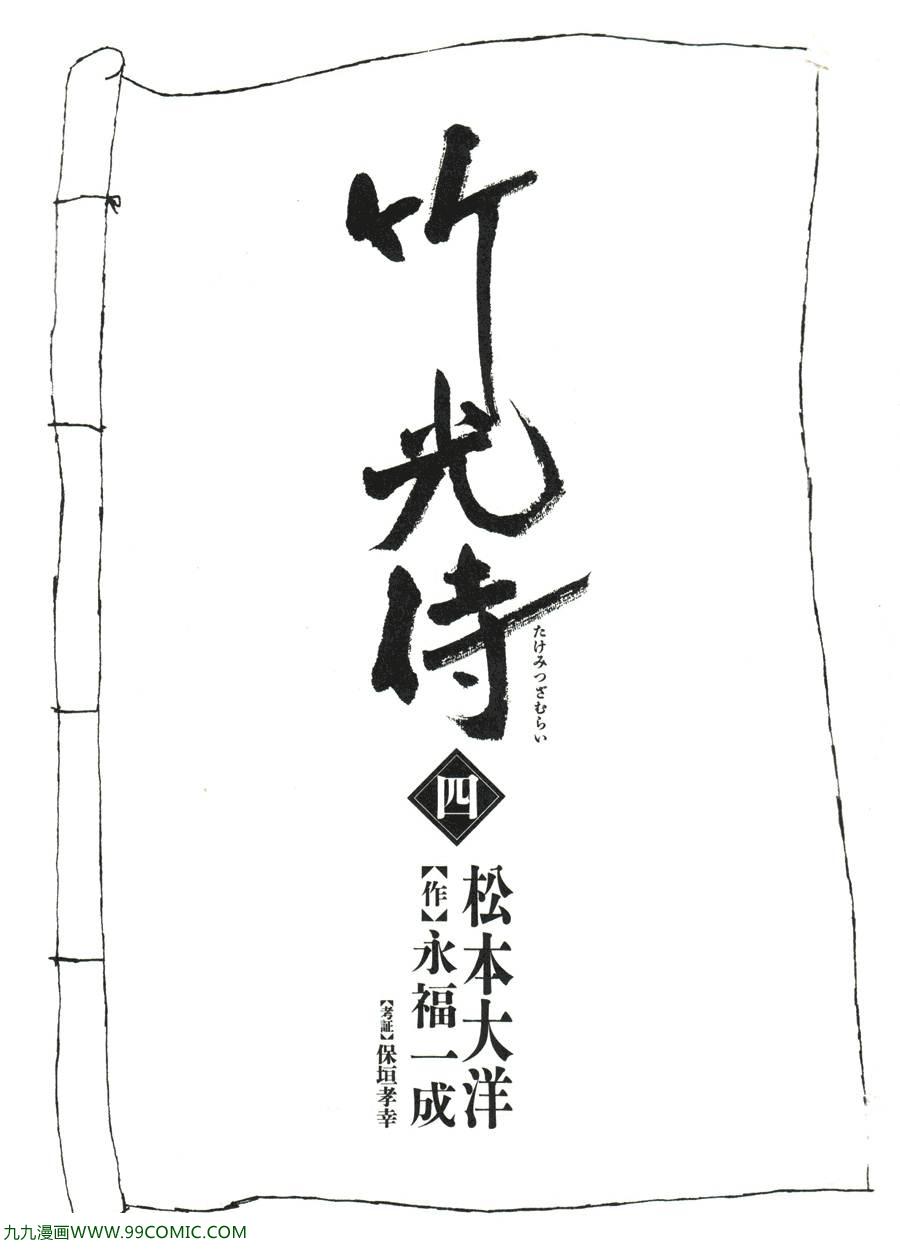 竹光侍
たけみつざむらい
四
松本大洋
【作】永福一成
【考証】保垣孝幸
九九漫画WWW.99COMIC.COM